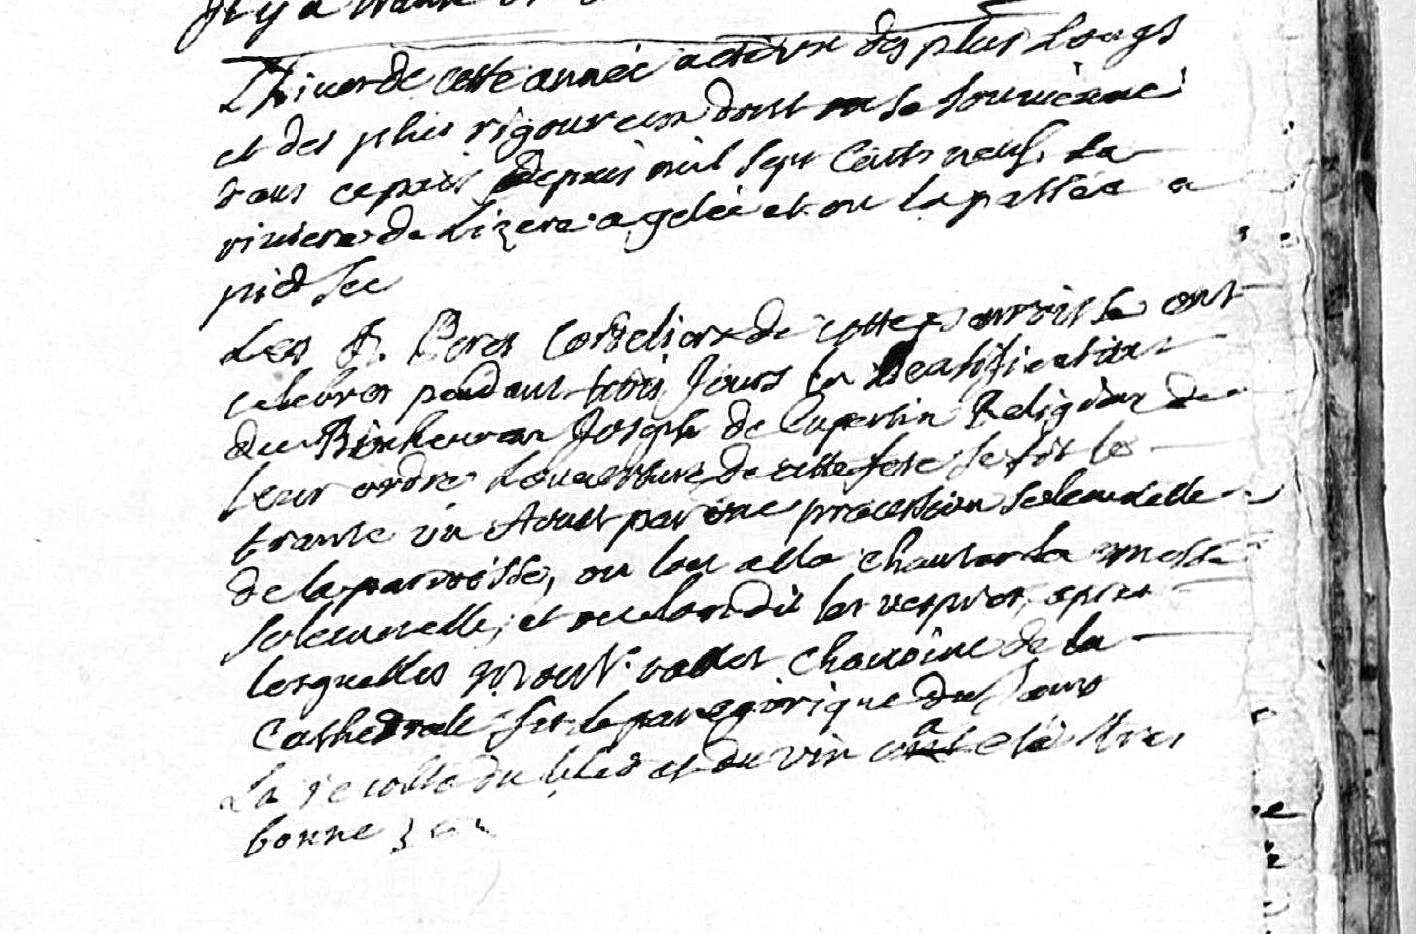 Il y a trante
L'hiver de cette année a été un des plus longs
et des plus rigoureux dont on se souvienne
dans ce païs depuis mil sept cents neuf. La
riviere de Lizere a gelée et on la passée a
pied sec
Les R. Peres Cordeliers de cette parroisse ont
celebrer pendant trois jours la Beatification
du Binheureux Joseph de Cupertin Religieux de
leur ordre Louverture de cette fete se fit le
trante un Aout par une procession solemnelle
de la parroisse, ou lon alla chanter la messe
solemnelle, et ou lon dit les vespres, apres
lesquelles Monsr. vallet chanoine de la
Cathedrale fit le panegirique du jour
La recolte du bled et du vin a eté tres
bonne